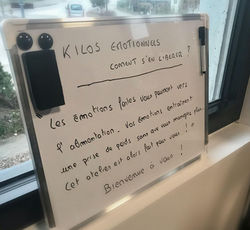 KILOS EMOTIONNELS
COMENT S'EN LIBERER ?
Les émotions fortes vous poussent vers
l'alimentation. Vos émotions entraînent
une prise de poids sans que vous mangiez plus
Cet atelier est alors fait pour vous !
Bienvenue à vous !